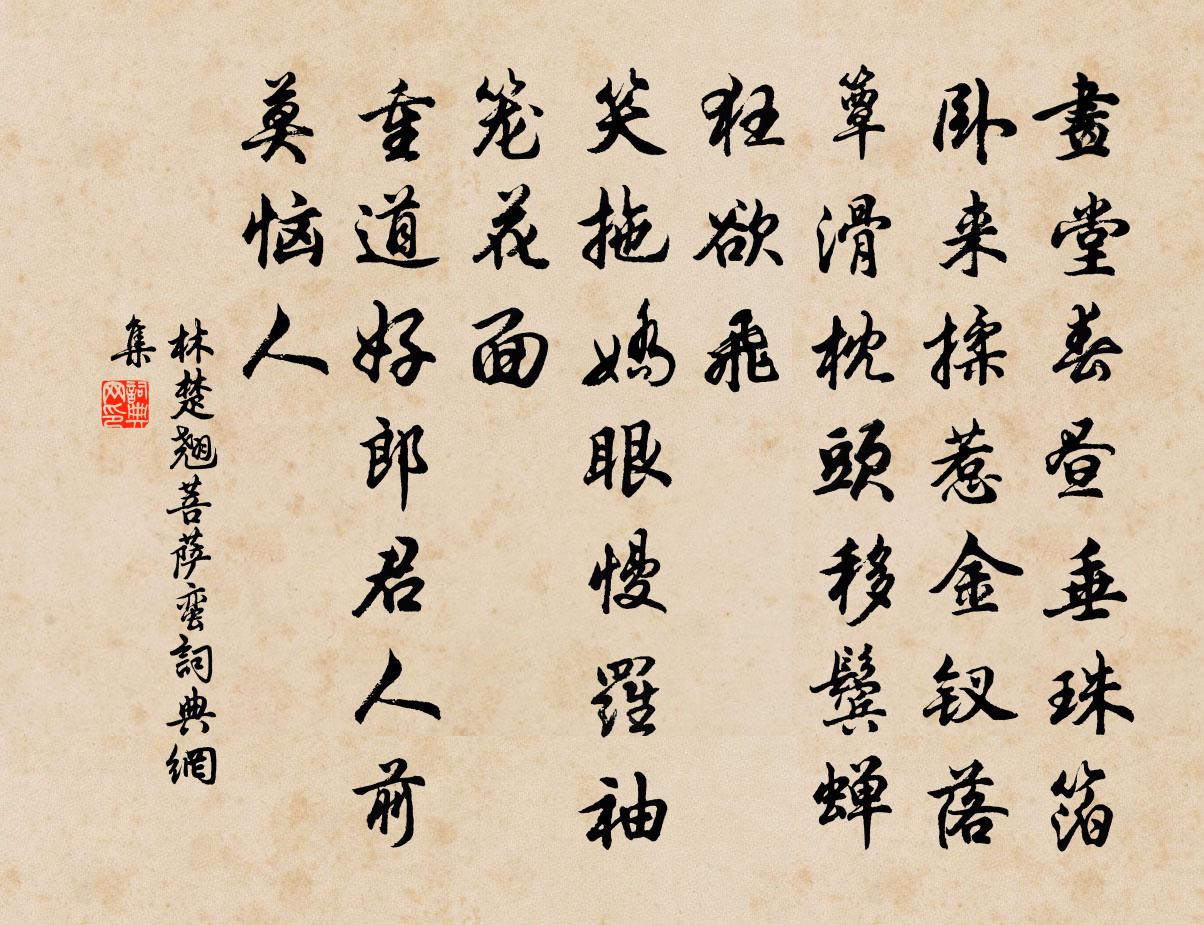 畫堂春昼垂珠箔
卧来揉惹金钗落
簟滑枕頭移鬓蝉
狂欲飛
笑拖嬌眼慢羅袖
笼花面
重道好郎君人前
莫恼人
林楚翘菩萨蛮詞典網
集
詞典网印